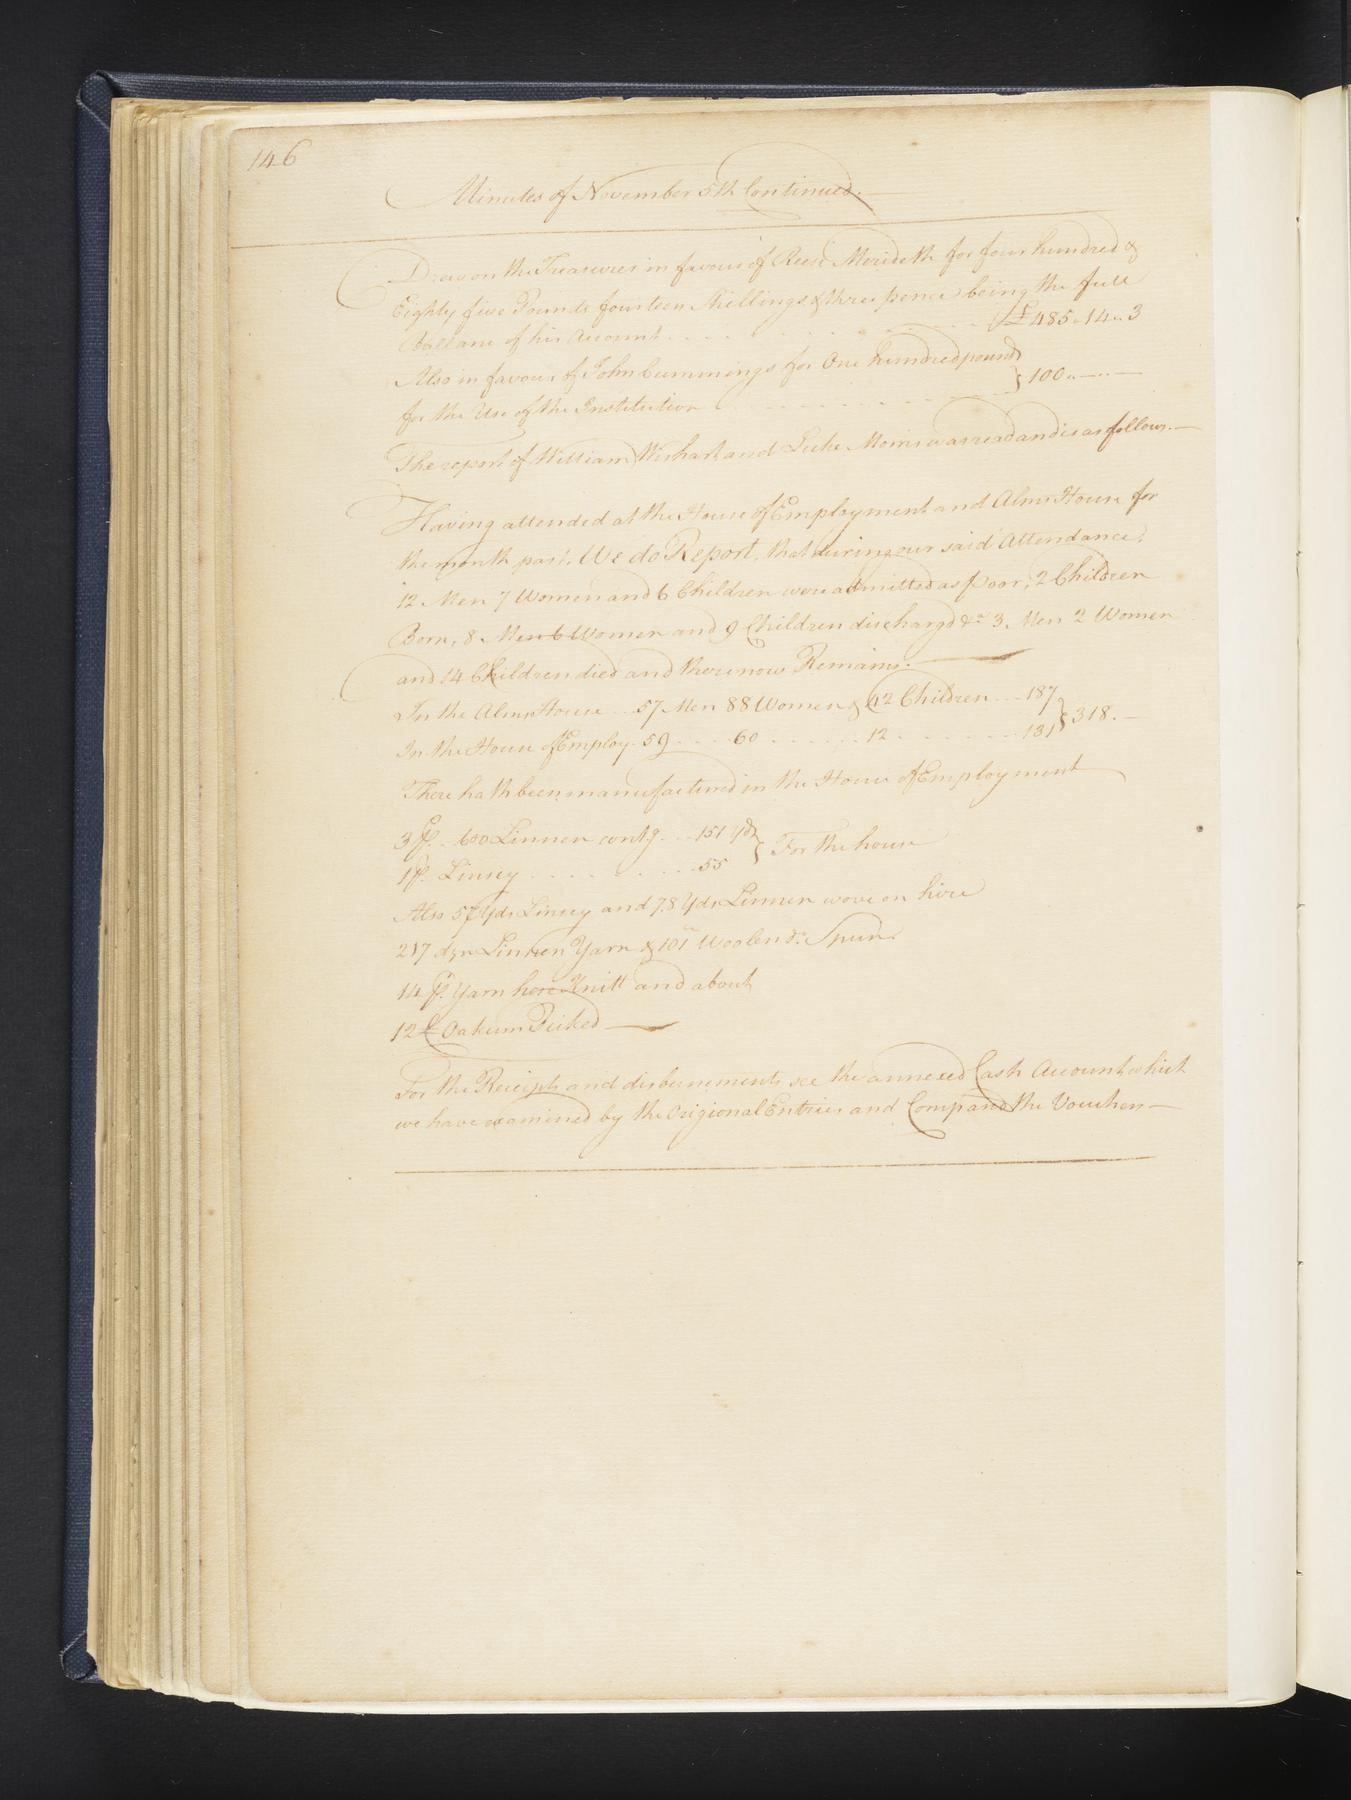 146
Minutes of November 5th Continued.—
Drew on the Treasurer in favour of Rees Merideth for four hundred &
Eighty five Pounds fourteen Shillings & three pence being the full
Ballance of his Account . . . . £485..14..3
Also in favour of John Cummings for One hundred pounds
for the Use of the Institution . . . . } 100..—..—
The report of William Wishart and Luke Morris was read and is as follows.—
Having attended at the House of Employment and Alms House for
the month past, We do Report, that during our said Attendance,
12 Men 7 Women and 6 Children were admitted as poor, 2 Children
Born, 8 Men 6 Women and 9 Children dischargd &ca 3 Men 2 Women
and 14 Children died and there now Remains.—
In the Alms House . . 57 Men 88 Women & 42 Children . . . 187
In the House of Employ. 59 . . . . 60 . . . . . . 12 . . . . . . . 131 } 318.—
There hath been manufactured in the House of Employment
3 ps. . 600 Linnen contg . . . 151 yds
1 ps. Linsey . . . . . . . . 55 } For the house
Also 57 Yds Linsey and 78 Yds Linnen wove on hire
217 dzn Linnen Yarn & 101 Woolen do. Spun.
14 pr. Yarn hose Knitt and about
12 C Oakum Picked —
For the Receipts and disbursements see the annexed Cash Account which
we have examined by the Origional Entries and Compared the Vouchers—